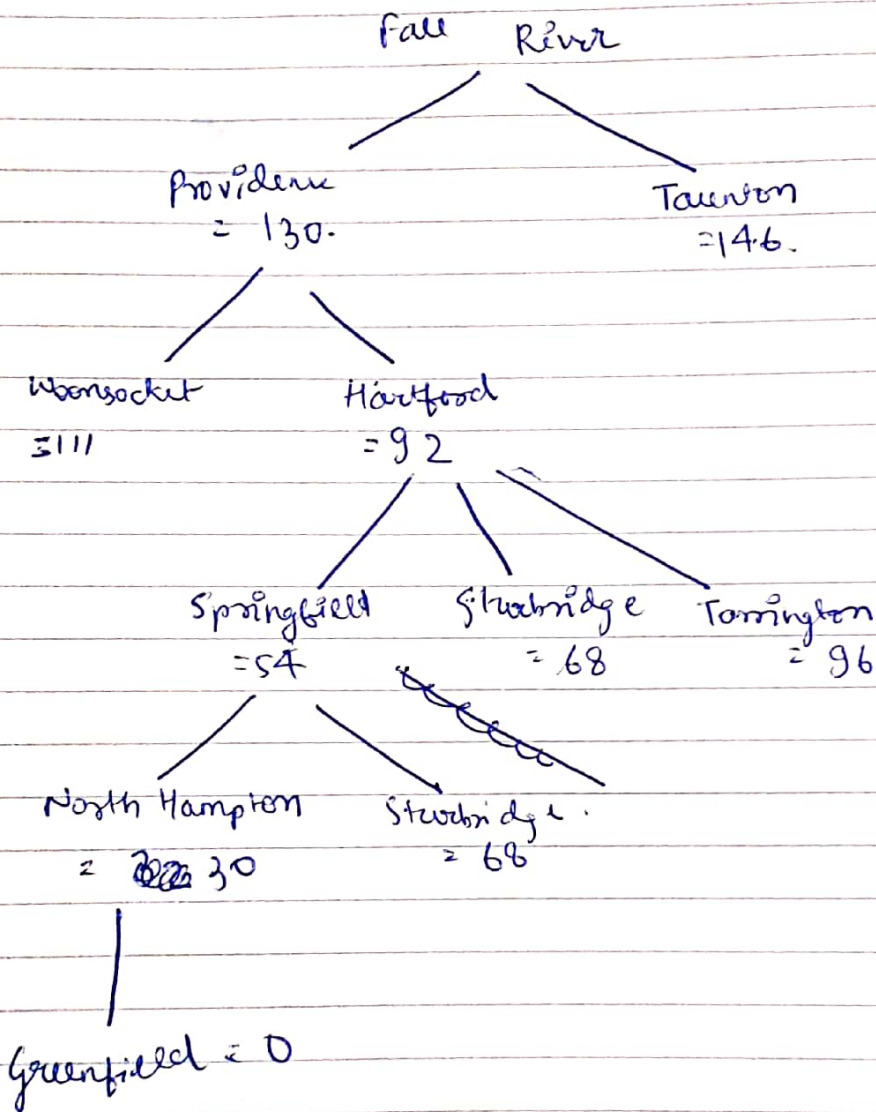 Fall River
Providence Taunton
= 130. = 146.
Woonsocket Hartford
= 111 = 92
Springfield Sturbridge Torrington
= 54 = 68 = 96
North Hampton Sturbridge.
= 30 = 68
Greenfield = 0